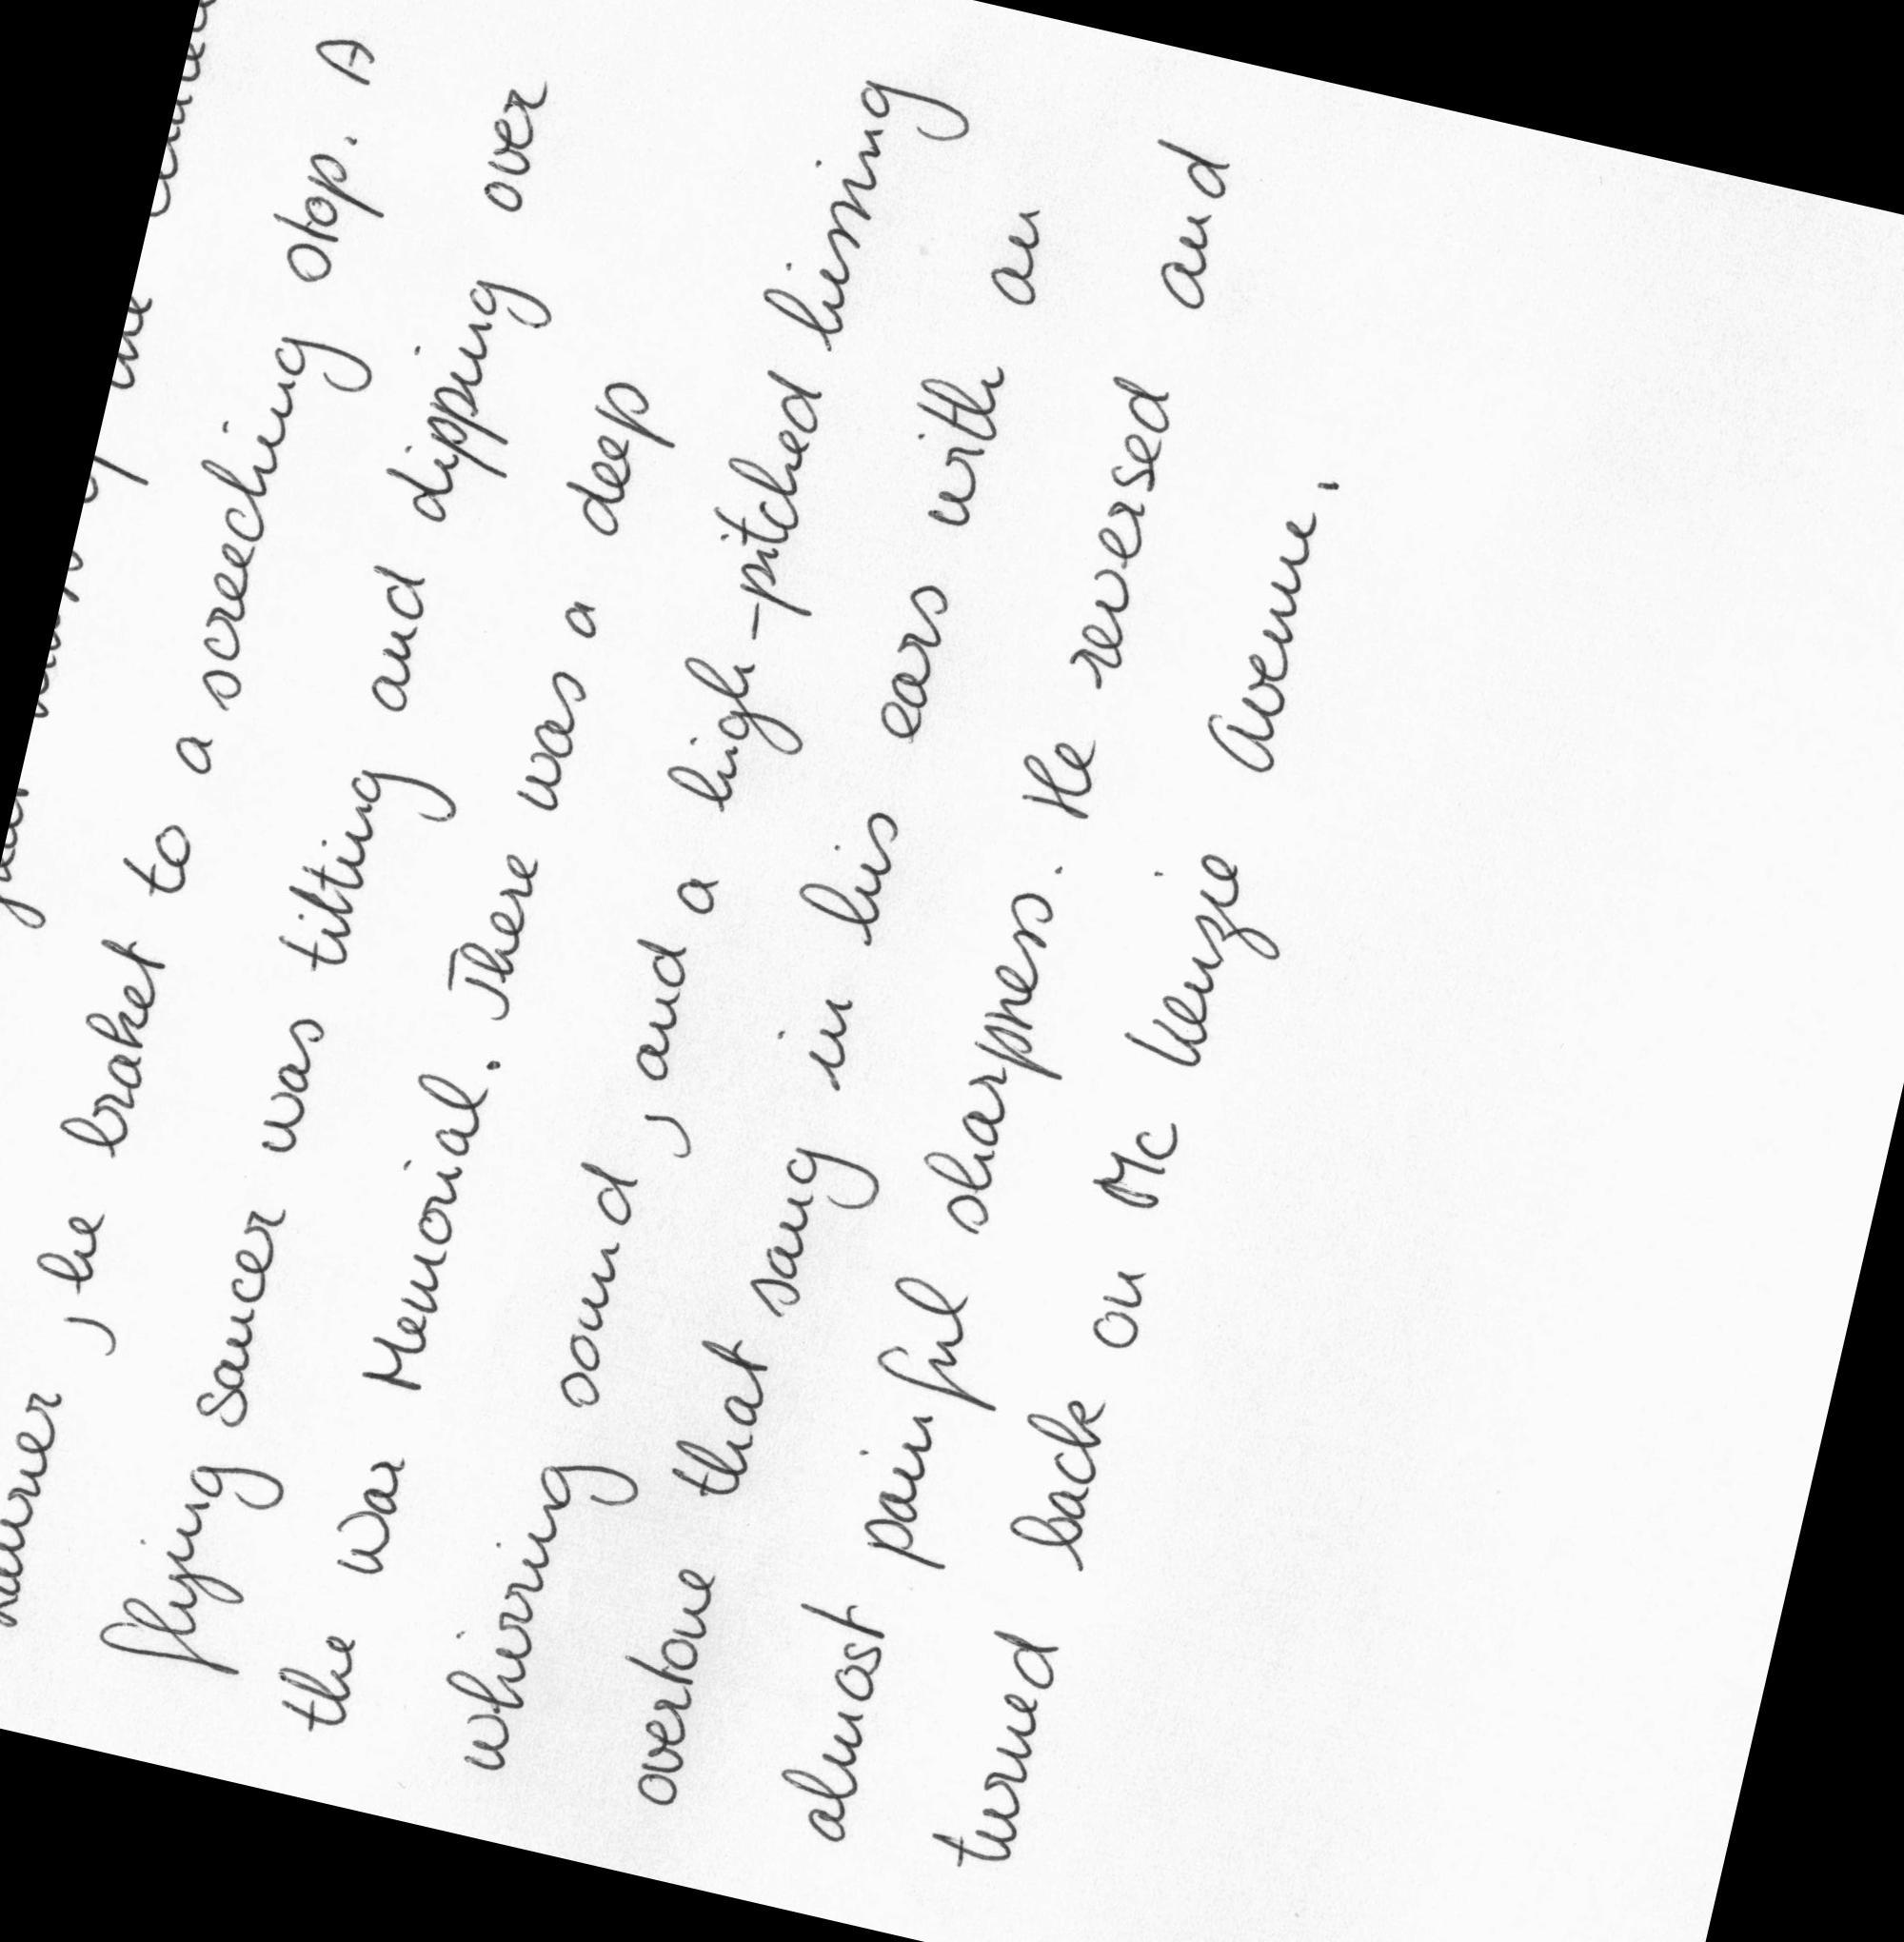 , he braket to a screeching stop. A
flying saucer was tilting and dipping over
the War Memorial. There was a deep
whirring sound, and a high-pitched hissing
overtone that sang in his ears with an
almost painful sharpness. He reversed and
turned back on Mc Kenzie Avenue.